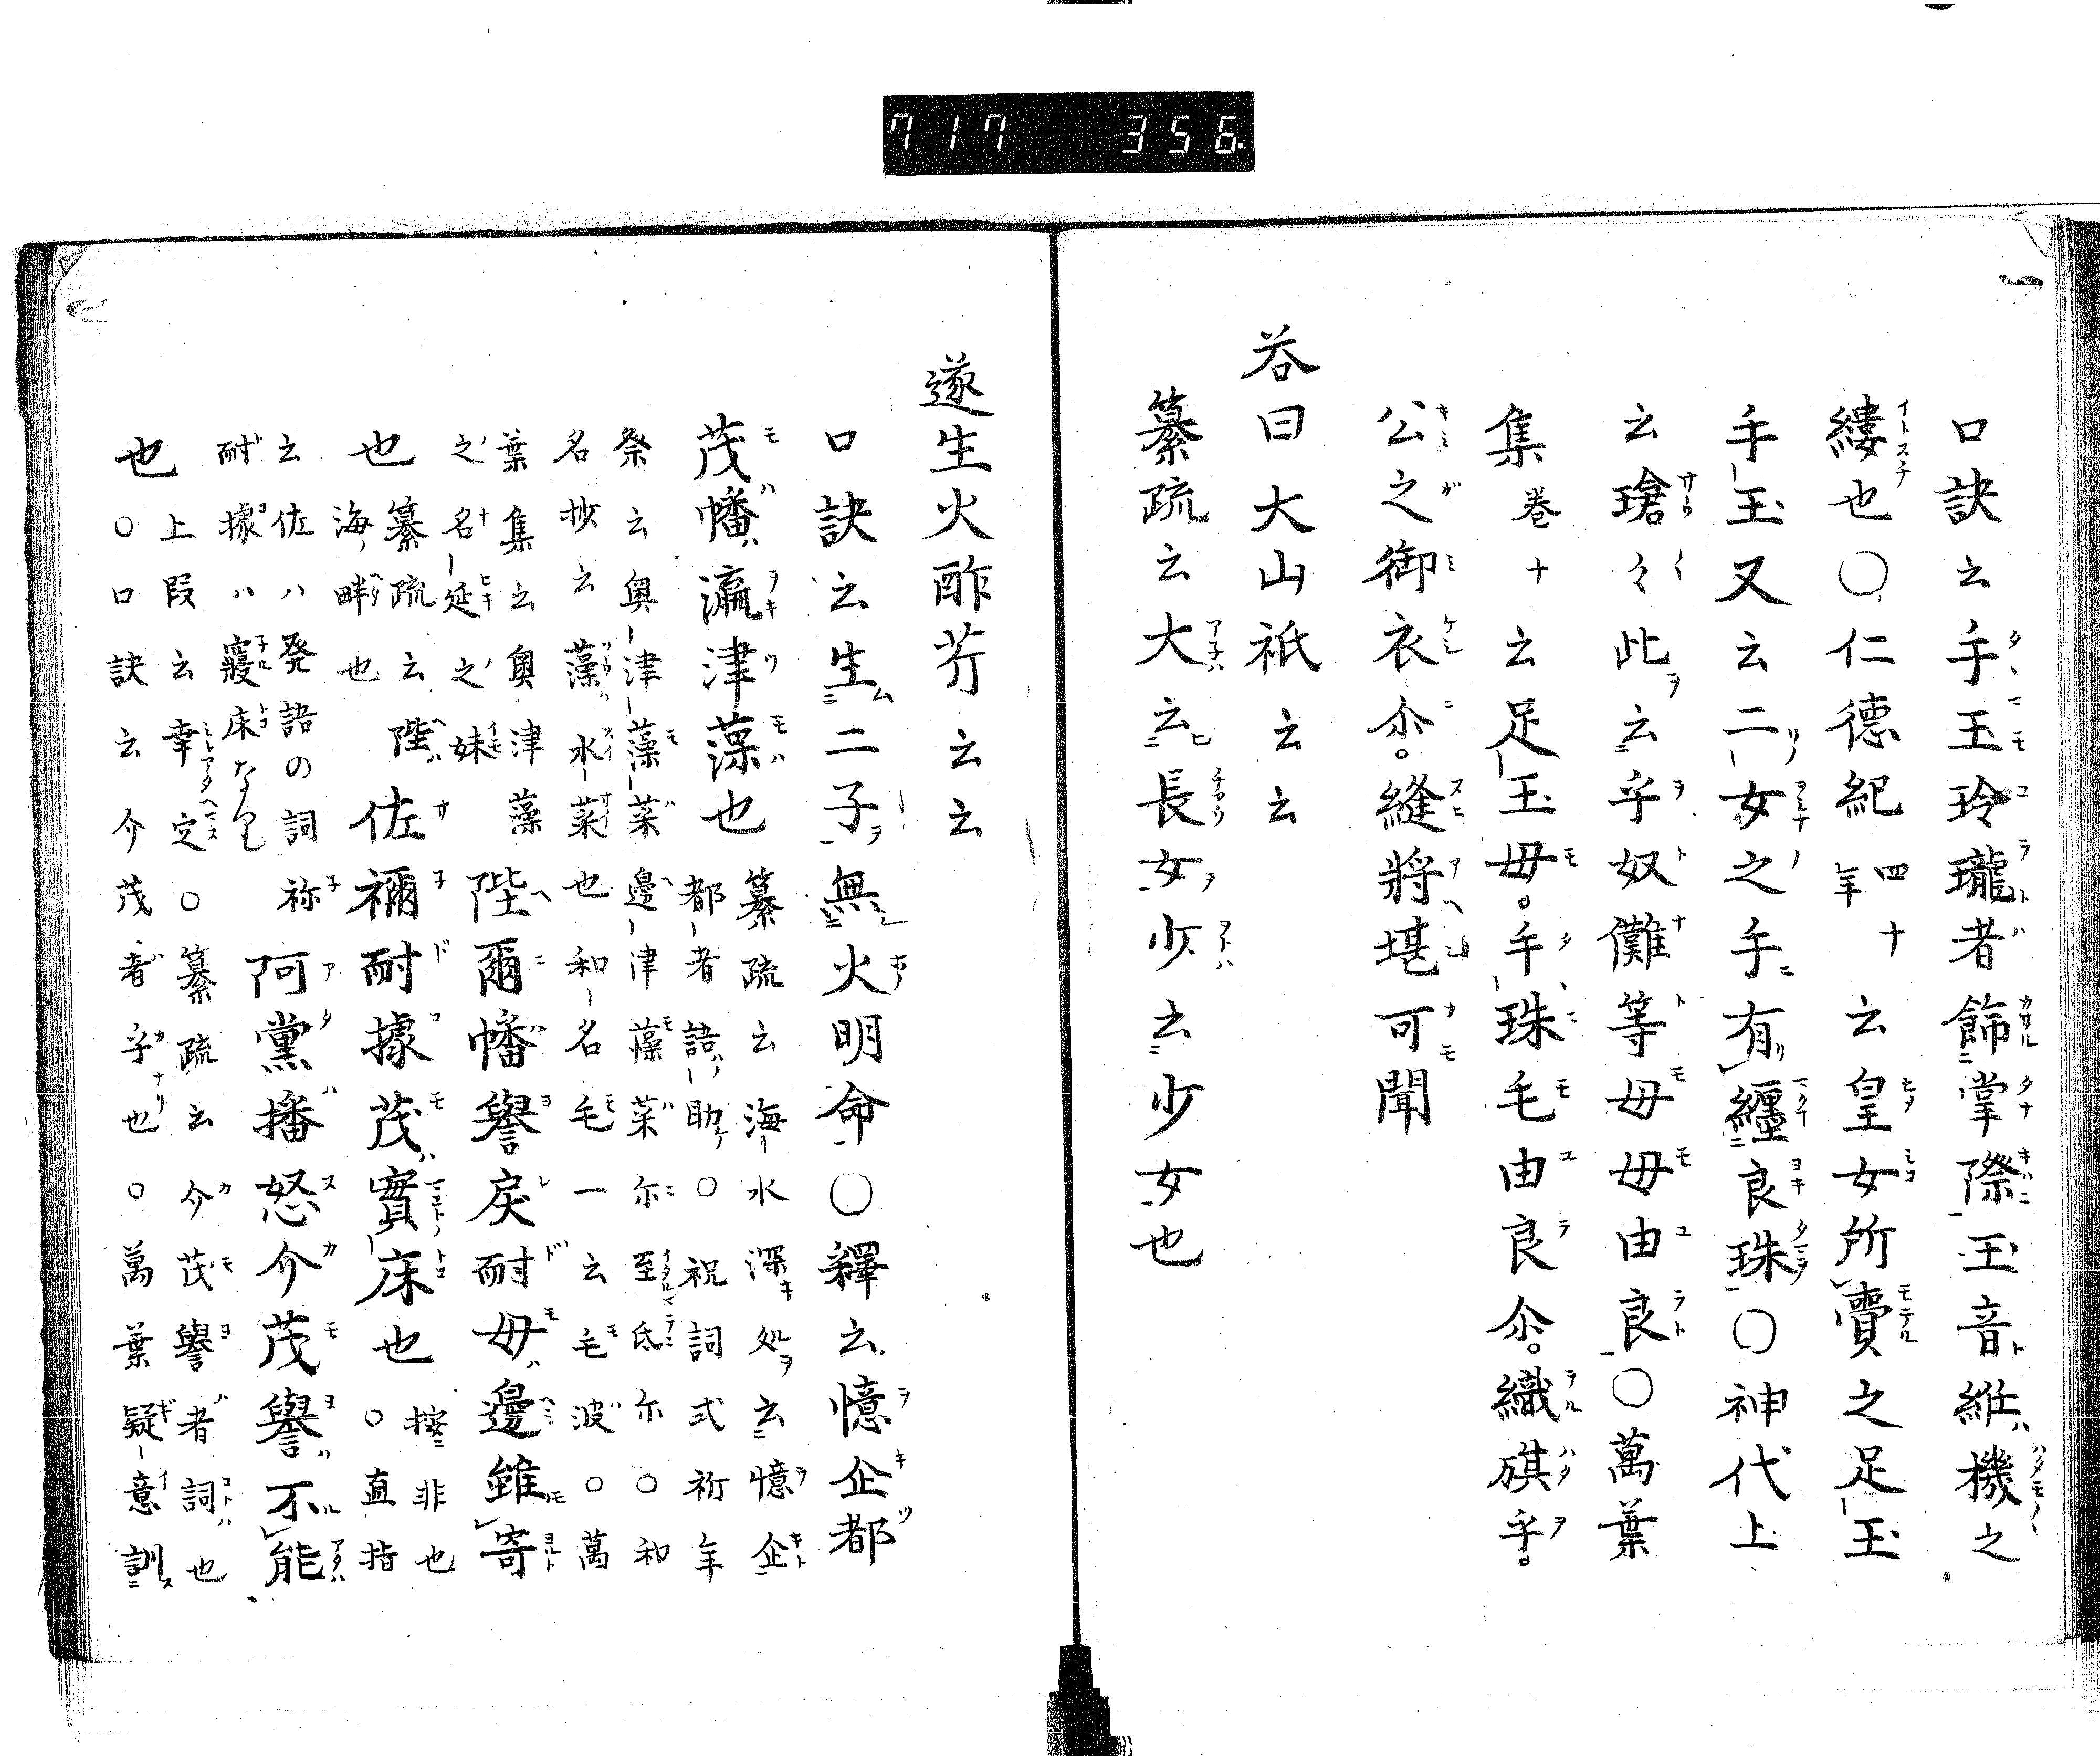 717 356.
口訣云手玉玲瓏者飾掌際玉音維機之
縷也〇仁德紀四十年云皇女所賷之足玉
手玉又云二女之手有纒良珠〇神代上
云瑲々此云乎奴儺等母母由良〇萬葉
集巻十云足玉母。手珠毛由良尒。織旗乎。
公之御衣尒。縫將堪可聞
荅曰大山祇云云
纂疏云大云長女少云少女也
遂生火酢芹云云
口訣云生二子無火明命〇釋云憶企都
茂幡瀛津藻也纂疏云海水深処云憶企
都者語助〇祝詞式祈年
祭云奥津藻菜邊津藻菜尓至氐尓〇和
名抄云藻水菜也和名毛一云毛波〇萬
葉集云奥津藻
之名延之妹陛爾幡譽戻耐毋邊雖寄
也纂疏云陛
海畔也佐禰耐據茂實床也按非也
〇直指
云佐ハ発語の詞祢
耐據ハ寝床なり阿黨播怒介茂譽不能
也上叚云幸定〇纂疏云介茂譽者詞也
〇口訣云介茂者乎也〇萬葉疑意訓